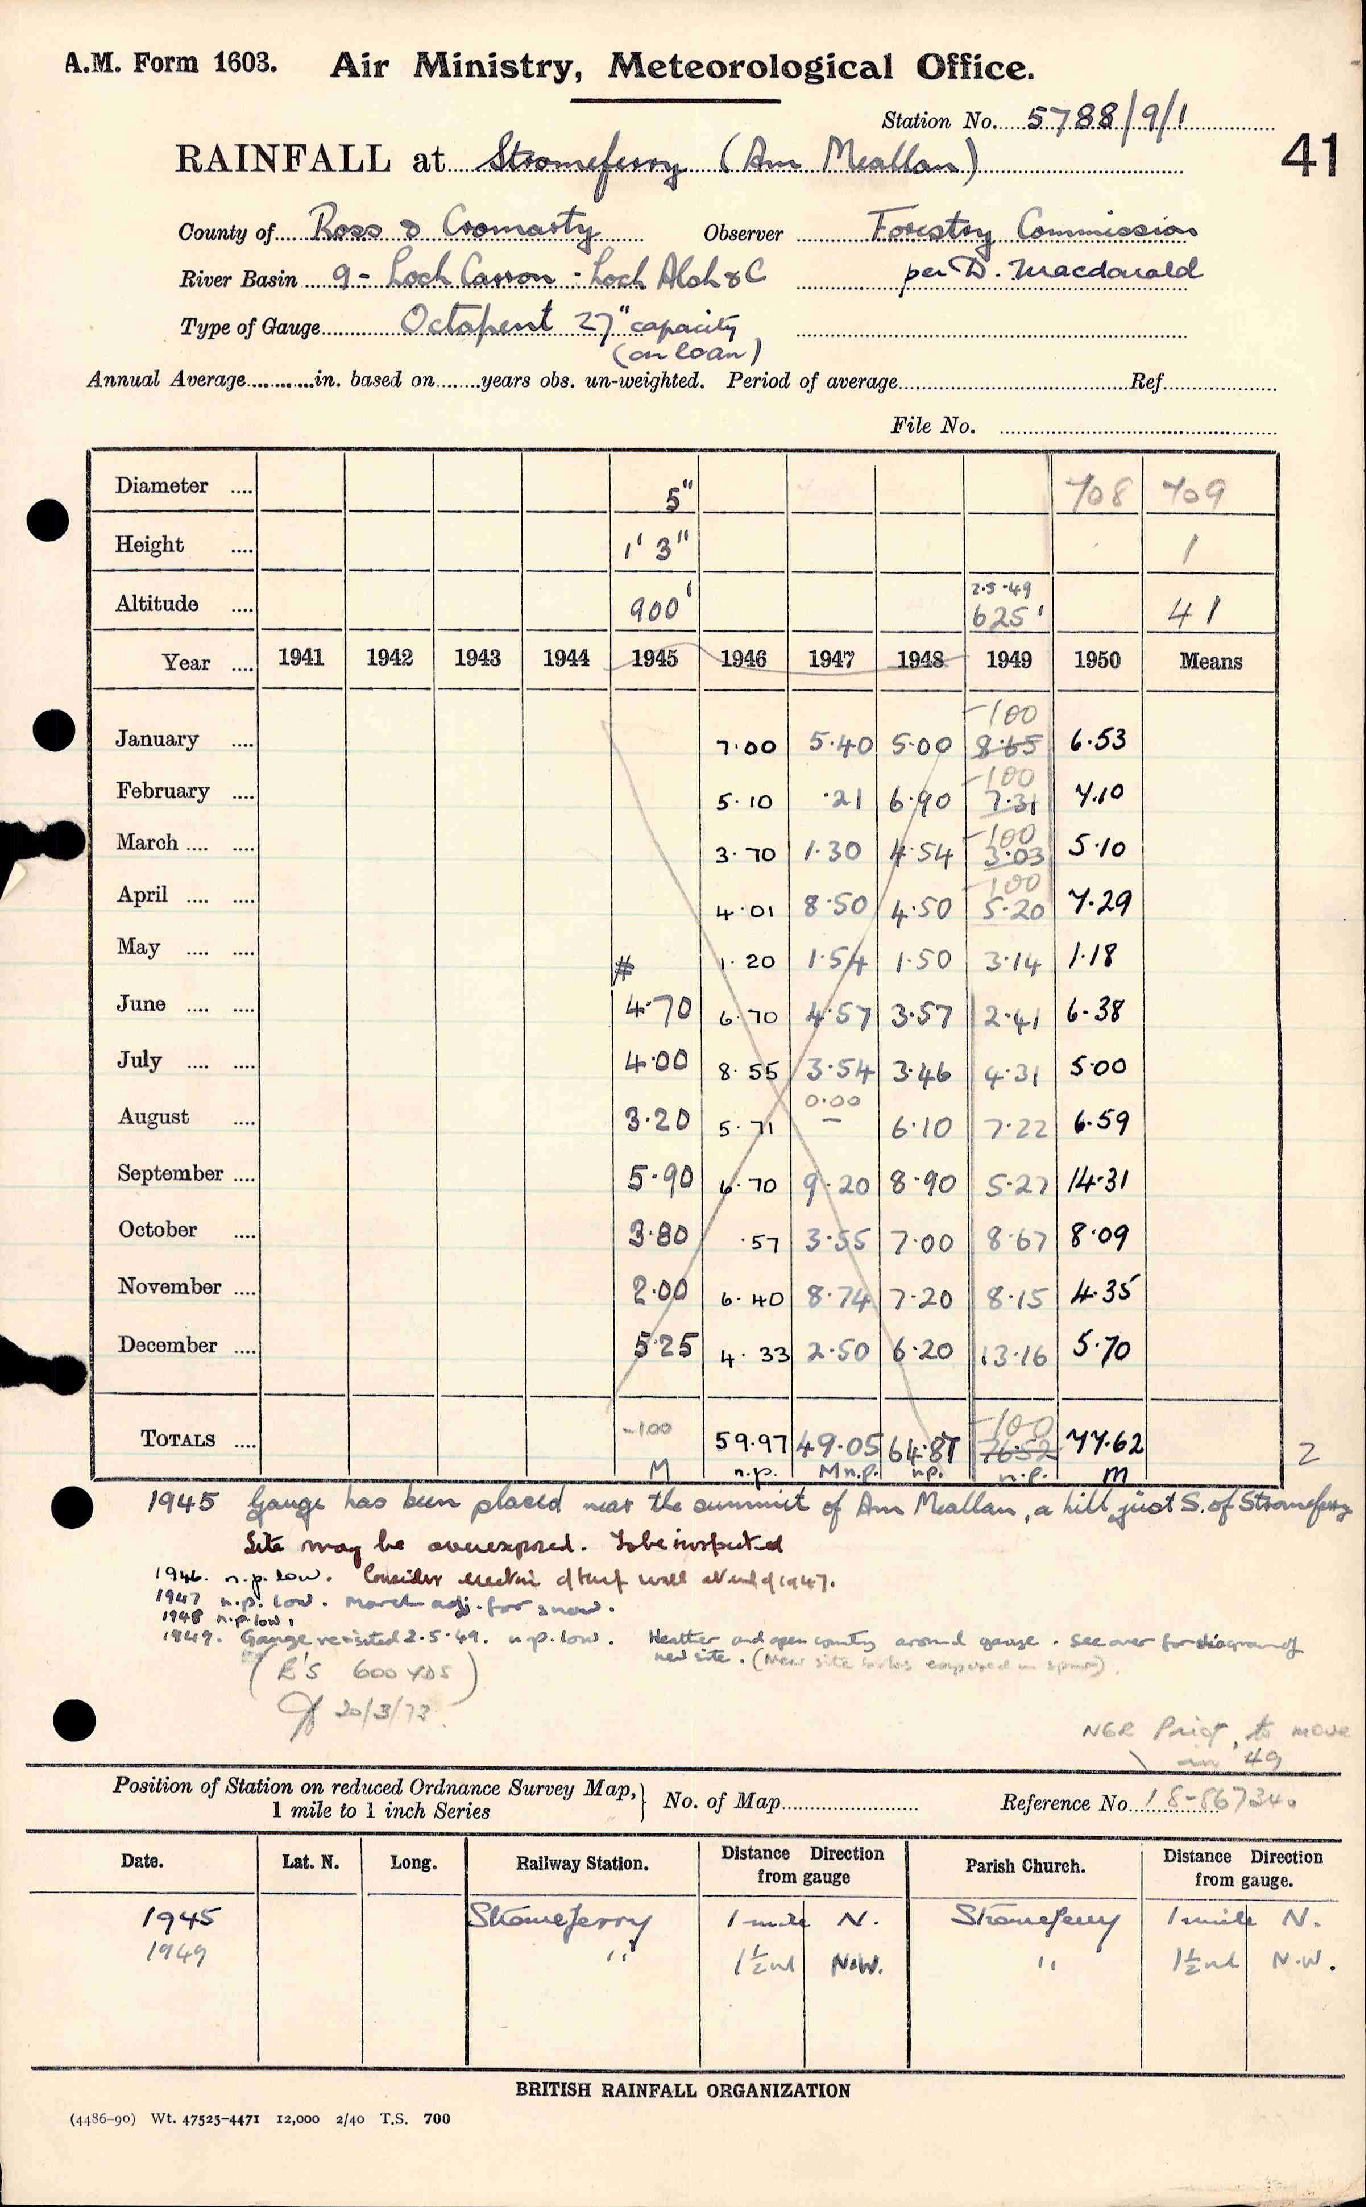 A.M. Form 1603. Air Ministry, Meteorological Office.
Station No. 5788/9/1
41
RAINFALL at Stromeferry (Am Meallan)
County of Ross & Cromarty Observer Forestry Commission
River Basin 9 - Loch Carron - Loch Alsh &C per D. Macdonald
Type of Gauge Octapent 27" capacity
(on loan)
Annual Average in. based on years obs. un-weighted. Period of average Ref.
File No.
Diameter 5" 708 709
Height 1' 3" 1
2.5.49
Altitude 900' 625' 41
Year 1941 1942 1943 1944 1945 1946 1947 1948 1949 1950 Means
-100
January 7.00 5.40 5.00 8.65 6.53
-100
February 5.10 .21 6.90 7.31 7.10
-100
March 3.70 1.30 4.54 3.03 5.10
-100
April 4.01 8.50 4.50 5.20 7.29
May # 1.20 1.54 1.50 3.14 1.18
June 4.70 6.70 4.57 3.57 2.41 6.38
July 4.00 8.55 3.54 3.46 4.31 5.00
0.00
August 3.20 5.71 — 6.10 7.22 6.59
September 5.90 6.70 9.20 8.90 5.27 14.31
October 3.80 .57 3.55 7.00 8.67 8.09
November 2.00 6.40 8.74 7.20 8.15 4.35
December 5.25 4.33 2.50 6.20 13.16 5.70
-100
TOTALS -100 59.97 49.05 64.87 76.52 77.62
2
M n.p. M n.p. n.p. n.p. m
1945 Gauge has been placed near the summit of Am Meallan, a hill just S. of Stromeferry
Site may be overexposed. To be inspected
1946. n.p. low. Consider erection of turf wall at end of 1947.
1947 n.p. low. March adj. for snow.
1948 n.p. low.
1949. Gauge resited 2.5.49. n.p. low. Heather and open country around gauge. See over for diagram of
new site. (New site looks exposed in
(R'S 600 YDS)
20/3/73
NGR Prior to move
in '49
Position of Station on reduced Ordnance Survey Map,
1 mile to 1 inch Series No. of Map Reference No. 18-867340
Date. Lat. N. Long. Railway Station. Distance Direction from gauge Parish Church. Distance Direction from gauge.
1945 Stromeferry 1 mile N. Stromeferry 1 mile N.
1949 " 1½ ml N.W. " 1½ ml N.W.
BRITISH RAINFALL ORGANIZATION
(4486-90) Wt. 47525-4471 12,000 2/40 T.S. 700